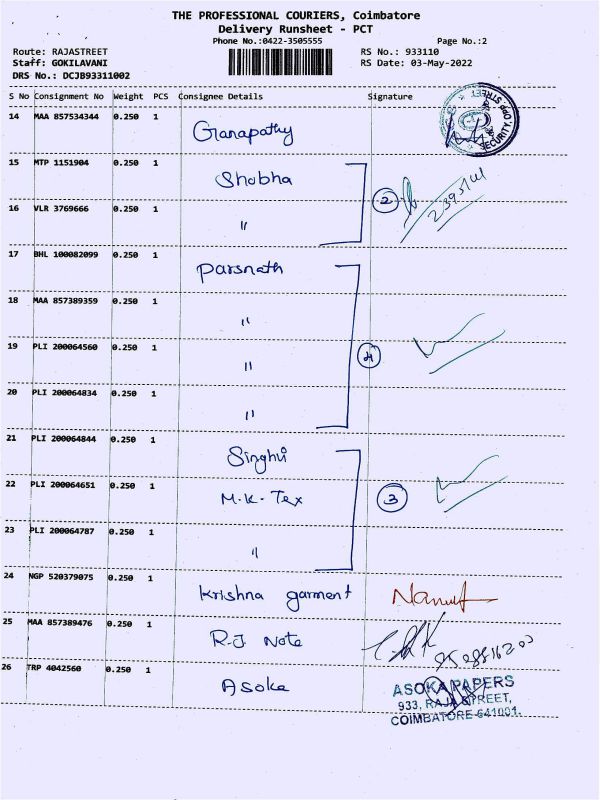 THE PROFESSIONAL COURIERS, Coimbatore
Delivery Runsheet - PCT
Phone No.:0422-3505555 Page No.:2
Route: RAJASTREET RS No.: 933110
Staff: GOKILAVANI RS Date: 03-May-2022
DRS No.: DCJB93311002
S No Consignment No Weight PCS Consignee Details Signature
14 MAA 857534344 0.250 1 Ganapathy SECURITY.OPP STREET
15 MTP 1151904 0.250 1 Shobha
2
16 VLR 3769666 0.250 1 "
17 BHL 100082099 0.250 1 Parsnath
18 MAA 857389359 0.250 1 "
19 PLI 200064560 0.250 1 " 4
20 PLI 200064834 0.250 1 "
21 PLI 200064844 0.250 1 Singhvi
22 PLI 200064651 0.250 1 M.K. Tex 3
23 PLI 200064787 0.250 1 "
24 NGP 520379075 0.250 1 Krishna garment
25 MAA 857389476 0.250 1 R.J Note
26 TRP 4042560 0.250 1 Asoka ASOKA PAPERS
933, RAJA STREET,
COIMBATORE-641001.